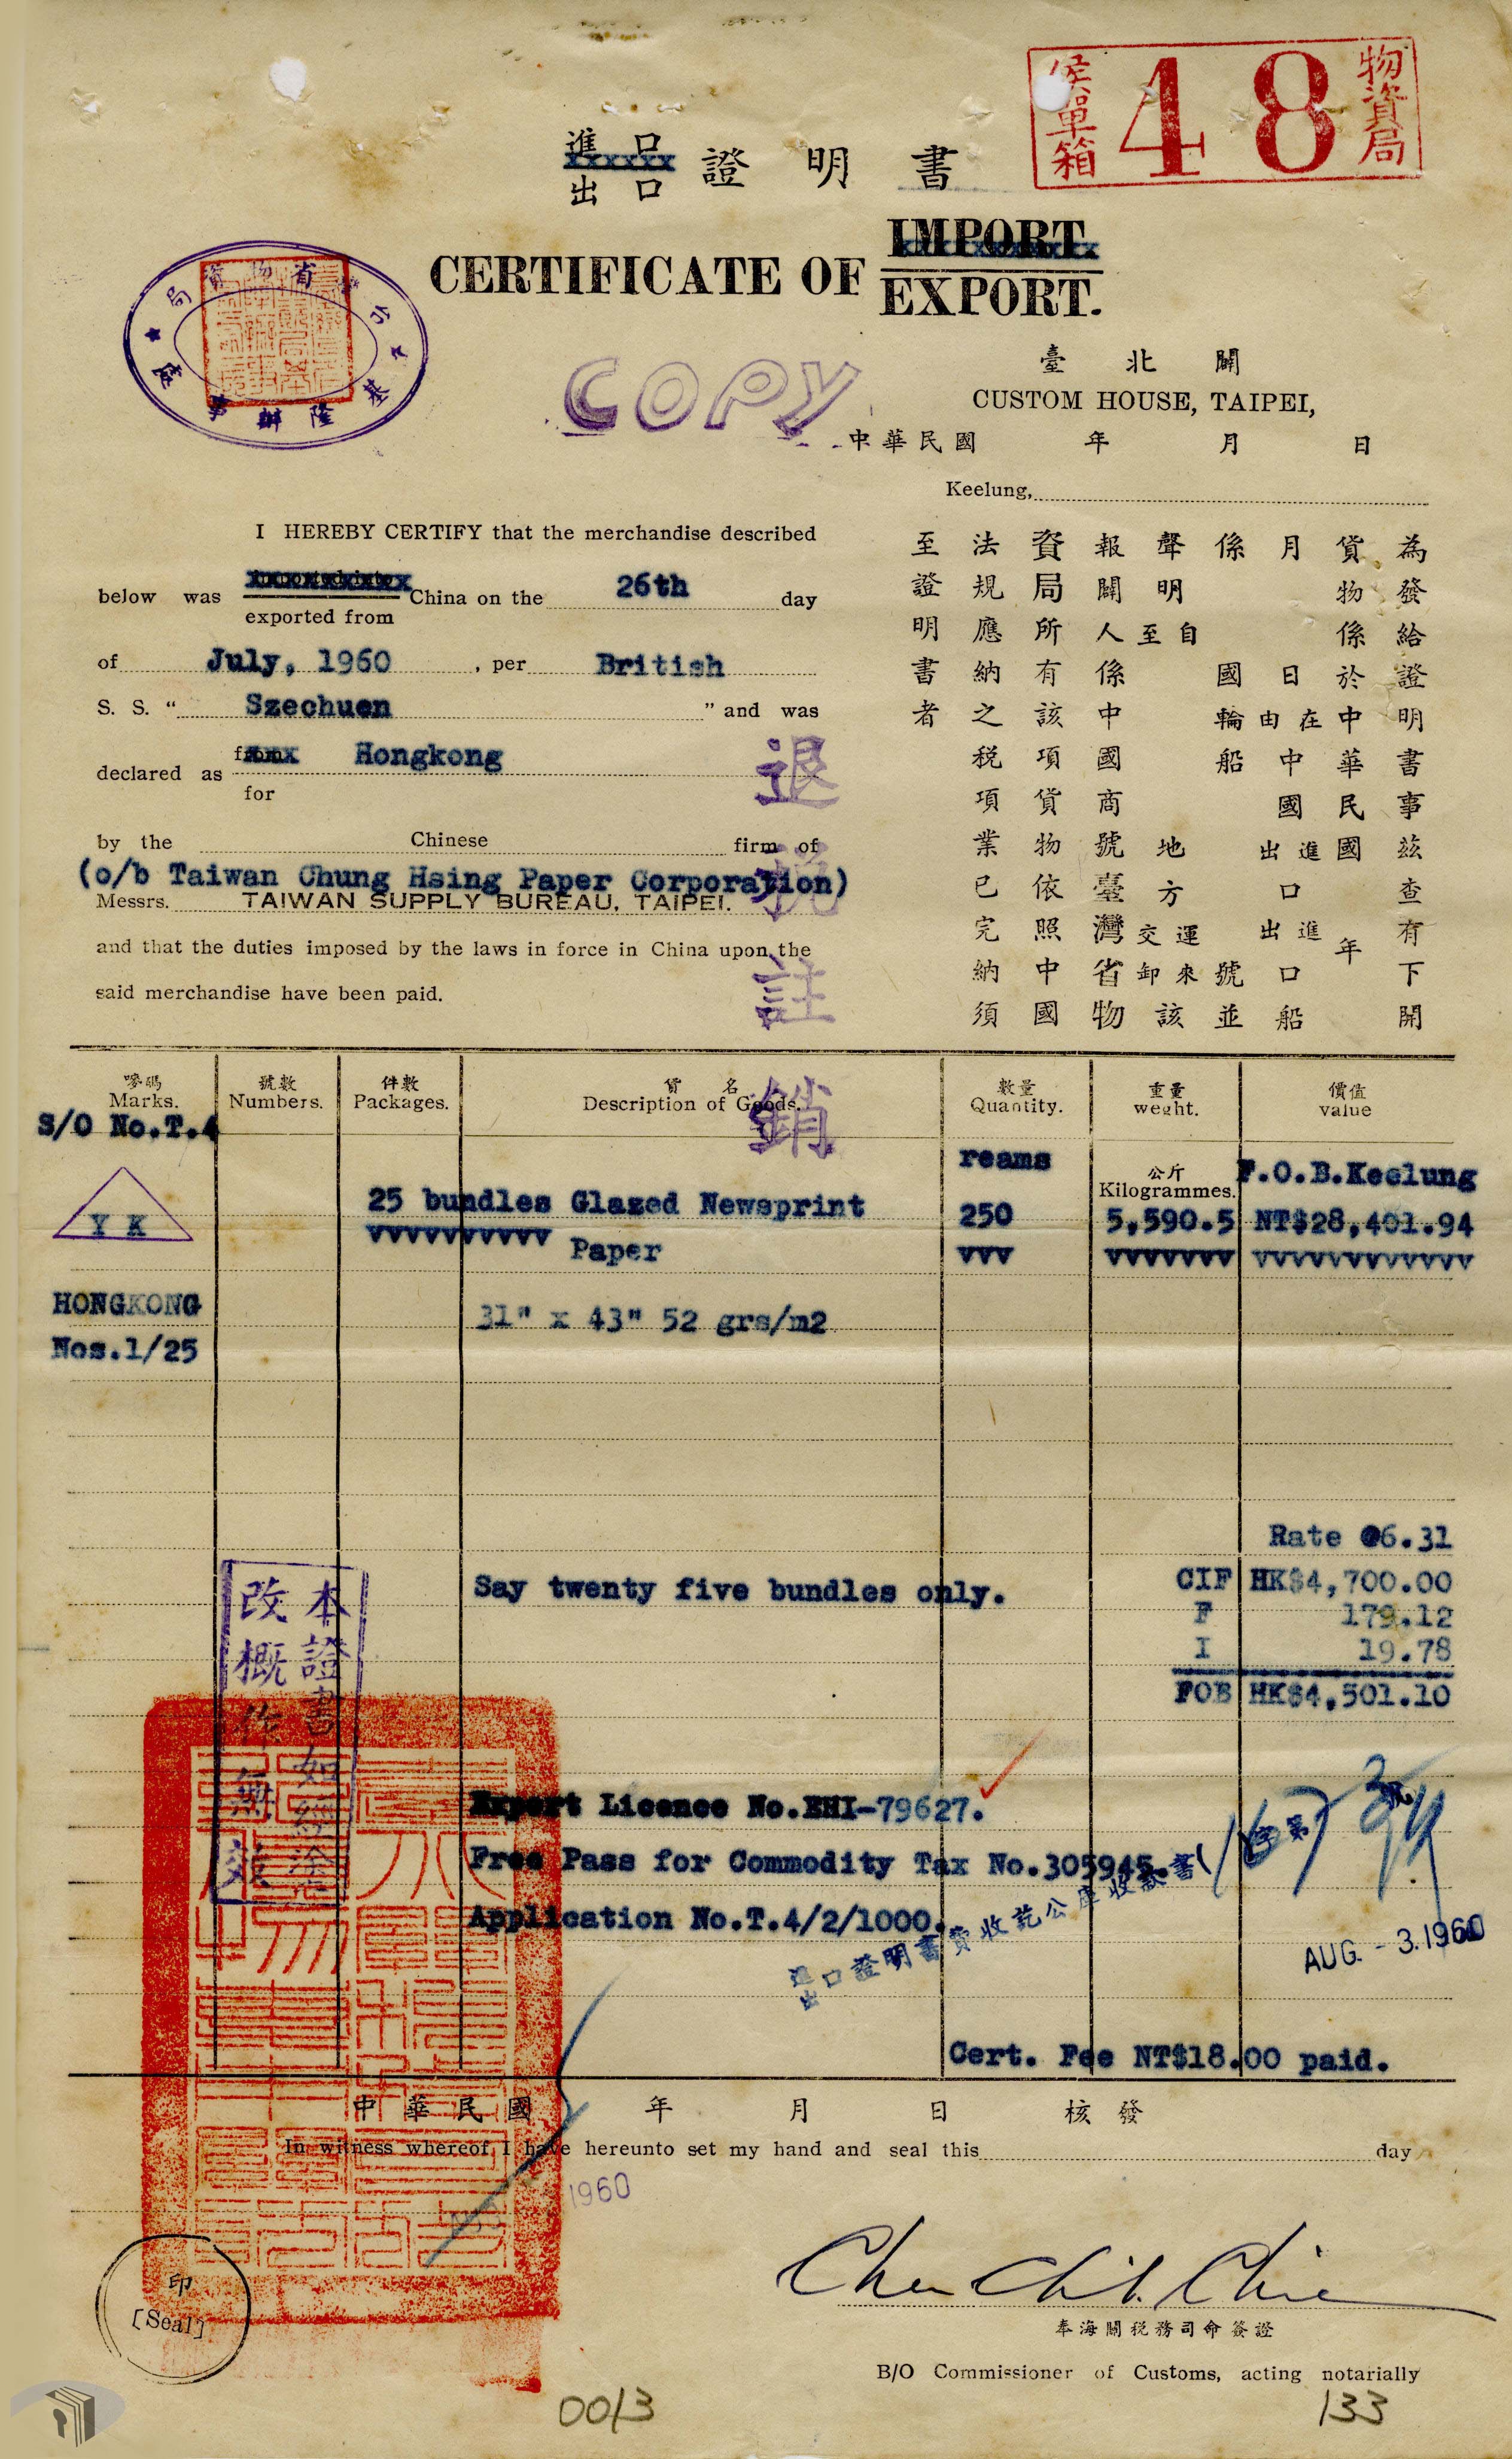 物資局
48
候單箱
進口
出口
證明書
CERTIFICATE OF
IMPORT.
EXPORT.
COPY
臺北關
CUSTOM HOUSE, TAIPEI,
中華民國 年 月 日
Keelung,
I HEREBY CERTIFY that the merchandise described
below was
exported from
China on the 26th day
of July, 1960, per British
S. S. "Szechuen" and was
declared as
from
for
Hongkong
by the Chinese firm of
(o/b Taiwan Chung Hsing Paper Corporation)
Messrs. TAIWAN SUPPLY BUREAU, TAIPEI.
and that the duties imposed by the laws in force in China upon the
said merchandise have been paid.
為發給證明書事茲查有下開
貨物係於中華民國 年
月 日在中國進口出口船
由進口出口
係 國輪船 號並
聲明自至 地方運來交卸該
報關人係中國 商號臺灣省物
資局所有該項貨物依照中國
法規應納之稅項業已完納須
至證明書者
退稅註銷
嘜碼
Marks.
號數
Numbers.
件數
Packages.
貨名
Description of Goods.
數量
Quantity.
重量
weght.
價值
value
S/O No.T.4
reams
公斤
Kilogrammes.
F.O.B.Keelung
Y K
25 bundles Glazed Newsprint 250 5,590.5 NT$28,401.94
Paper
HONGKONG
31" x 43" 52 grs/m2
Nos.1/25
Rate @6.31
Say twenty five bundles only.
CIF HK$4,700.00
F 179.12
I 19.78
FOB HK$4,501.10
本證書如經塗
改概作無效
Export Licence No.EHI-79627.
Free Pass for Commodity Tax No.305945.
Application No.T.4/2/1000.
進出口證明書費收訖公庫收款書
字第
號
AUG. - 3. 1960
Cert. Fee NT$18.00 paid.
中華民國 年 月 日 核發
In witness whereof, I have hereunto set my hand and seal this day
1960
印
[Seal]
奉海關稅務司命簽證
B/O Commissioner of Customs, acting notarially
0013
133